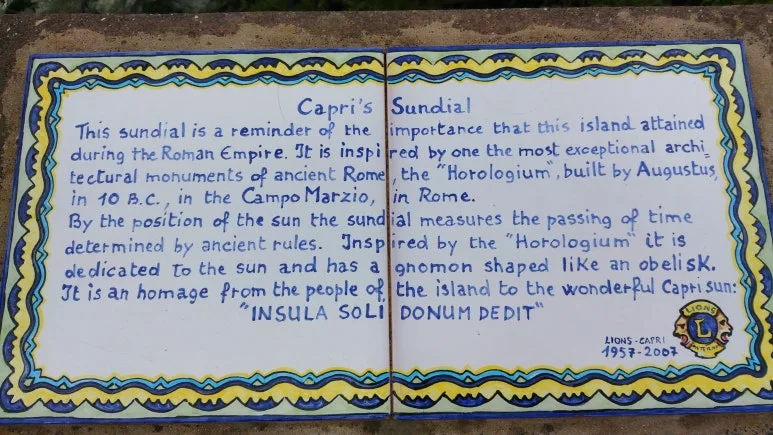 Capri's Sundial
This sundial is a reminder of the importance that this island attained
during the Roman Empire. It is inspired by one the most exceptional archi=
tectural monuments of ancient Rome, the "Horologium", built by Augustus,
in 10 B.C., in the Campo Marzio, in Rome.
By the position of the sun the sundial measures the passing of time
determined by ancient rules. Inspired by the "Horologium" it is
dedicated to the sun and has a gnomon shaped like an obelisk.
It is an homage from the people of the island to the wonderful Capri sun:
"INSULA SOLI DONUM DEDIT"
LIONS
L
LIONS - CAPRI
1957-2007